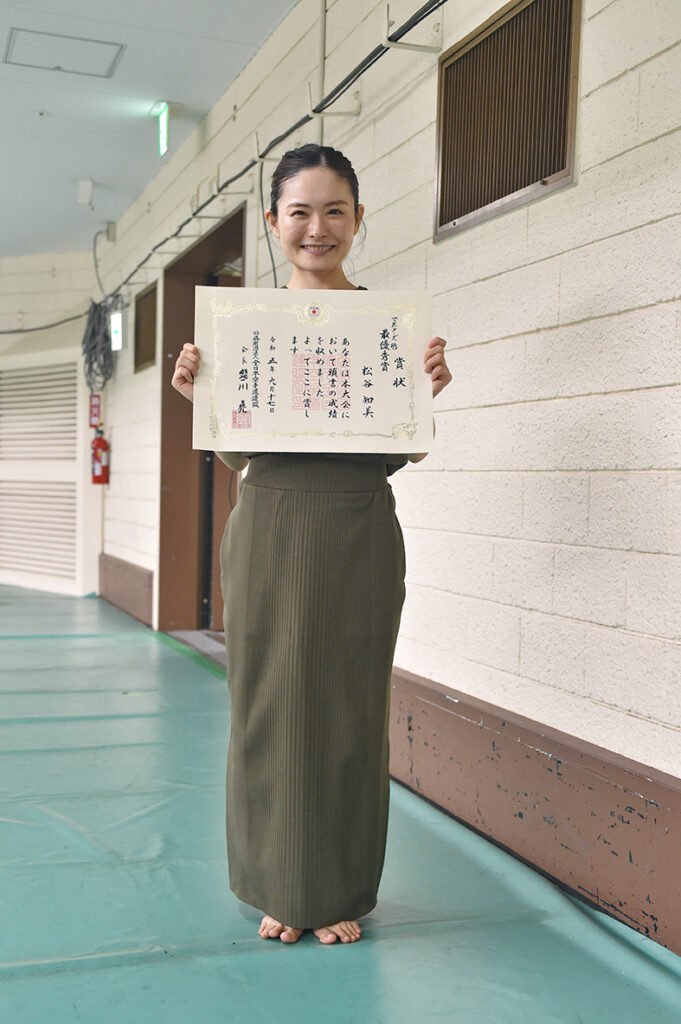 賞状
マスターズ形
最優秀賞
松谷 知美
あなたは本大会に
おいて頭書の成績
を収めました
よってここに賞し
ます
令和五年九月十七日
公益財団法人全日本空手道連盟
会長 笹川 堯
消火器